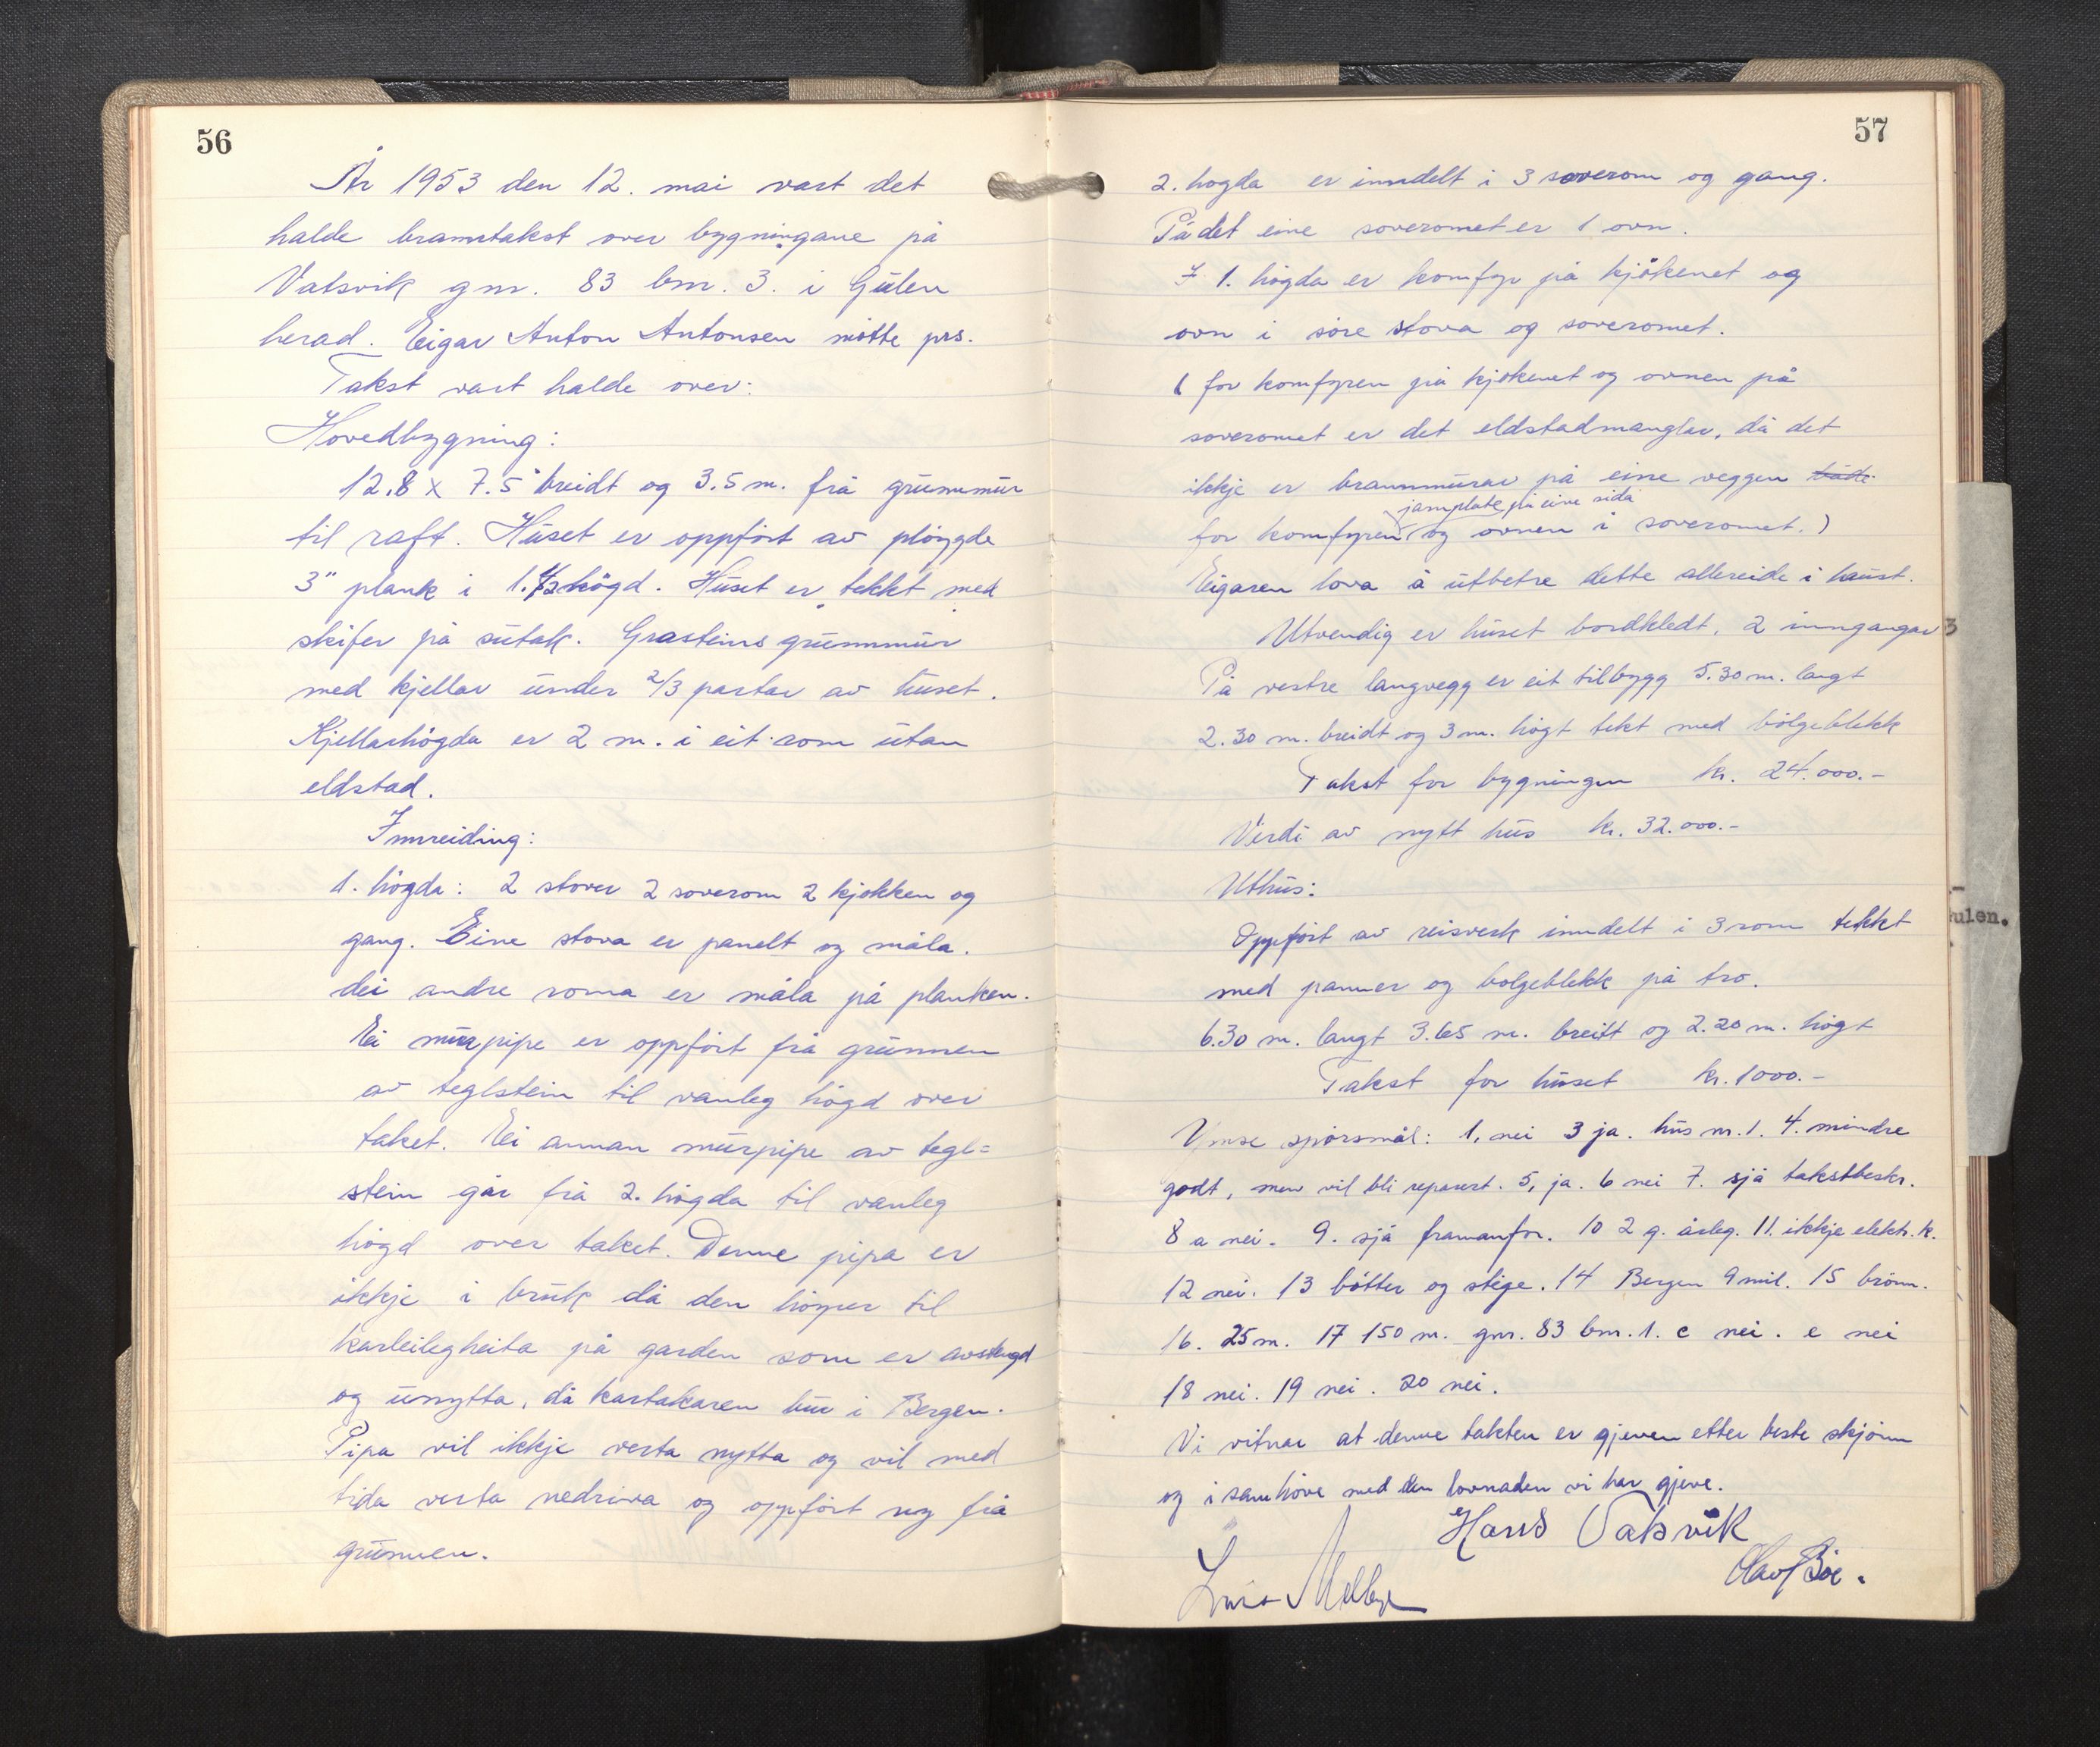 56
År 1953 den 12. mai vart det
halde branntakst over bygningane på
Vatsvik gnr. 83 bnr. 3. i Gulen
herad. Eigar Anton Antonsen møtte prs.
Takst vart halde over:
Hovedbygning:
12.8 x 7.5 breidt og 3.5 m. frå grunnmur
til raft. Huset er oppført av pløygde
3" plank i 1.1/2 høgd. Huset er tekkt med
skifer på sutak. Grasteins grunnmur
med kjellar under 2/3 partar av huset.
Kjellarhøgda er 2 m. i eit rom utan
eldstad.
Innreiding:
1. høgda: 2 stover 2 soverom 2 kjøkken og
gang. Eine stova er panelt og måla.
dei andre roma er måla på planken.
Ei murpipe er oppført frå grunnen
av teglstein til vanleg høgd over
taket. Ei annan murpipe av tegl=
stein går frå 2. høgda til vanleg
høgd over taket. Denne pipa er
ikkje i bruk då den høyrer til
karleilegheita på garden som er avstengd
og unytta, då kartakaren bur i Bergen.
Pipa vil ikkje verta nytta og vil med
tida verta nedriva og oppført ny frå
grunnen.
57
2. høgda er inndelt i 3 soverom og gang.
På det eine soverommet er 1 ovn.
I 1. høgda er komfyr på kjøkenet og
ovn i søre stova og soveromet.
( for komfyren på kjøkenet og ovnen på
soveromet er det eldstadmanglar, då det
ikkje er brannmurar på eine veggen både
jarnplate på eine sida
for komfyren og ovnen i soveromet.)
Eigaren lova å utbetre dette allereide i haust.
Utvendig er huset bordkledt, 2 inngangar
På vestre langvegg er eit tilbygg 5.30 m. langt
2.30 m. breidt og 3 m. høgt tekt med bølgeblekk
Takst for bygningen kr. 24.000.-
Verdi av nytt hus kr. 32.000.-
Uthus:
Oppført av reisverk inndelt i 3 rom tekkt
med panner og bølgeblekk på tro.
6.30 m. langt 3.65 m. breitt og 2.20 m. høgt
Takst for huset kr. 1000.-
Ymse spørsmål: 1, nei 3 ja. hus nr. 1. 4. mindre
godt, men vil bli reparert. 5, ja. 6 nei 7. sjå takstbeskr.
8 a nei. 9. sjå framanfor. 10 2 g. årleg. 11. ikkje elektr. k.
12 nei. 13 bøtter og stige. 14 Bergen 9 mil. 15 brønn.
16. 25 m. 17 150 m. gnr. 83 bnr. 1. c nei. e nei
18 nei. 19 nei. 20 nei.
Vi vitnar at denne taksten er gjeven etter beste skjønn
og i samhøve med den lovnaden vi har gjeve.
Hans Vatsvik
Olav Bøe.
3
ulen.